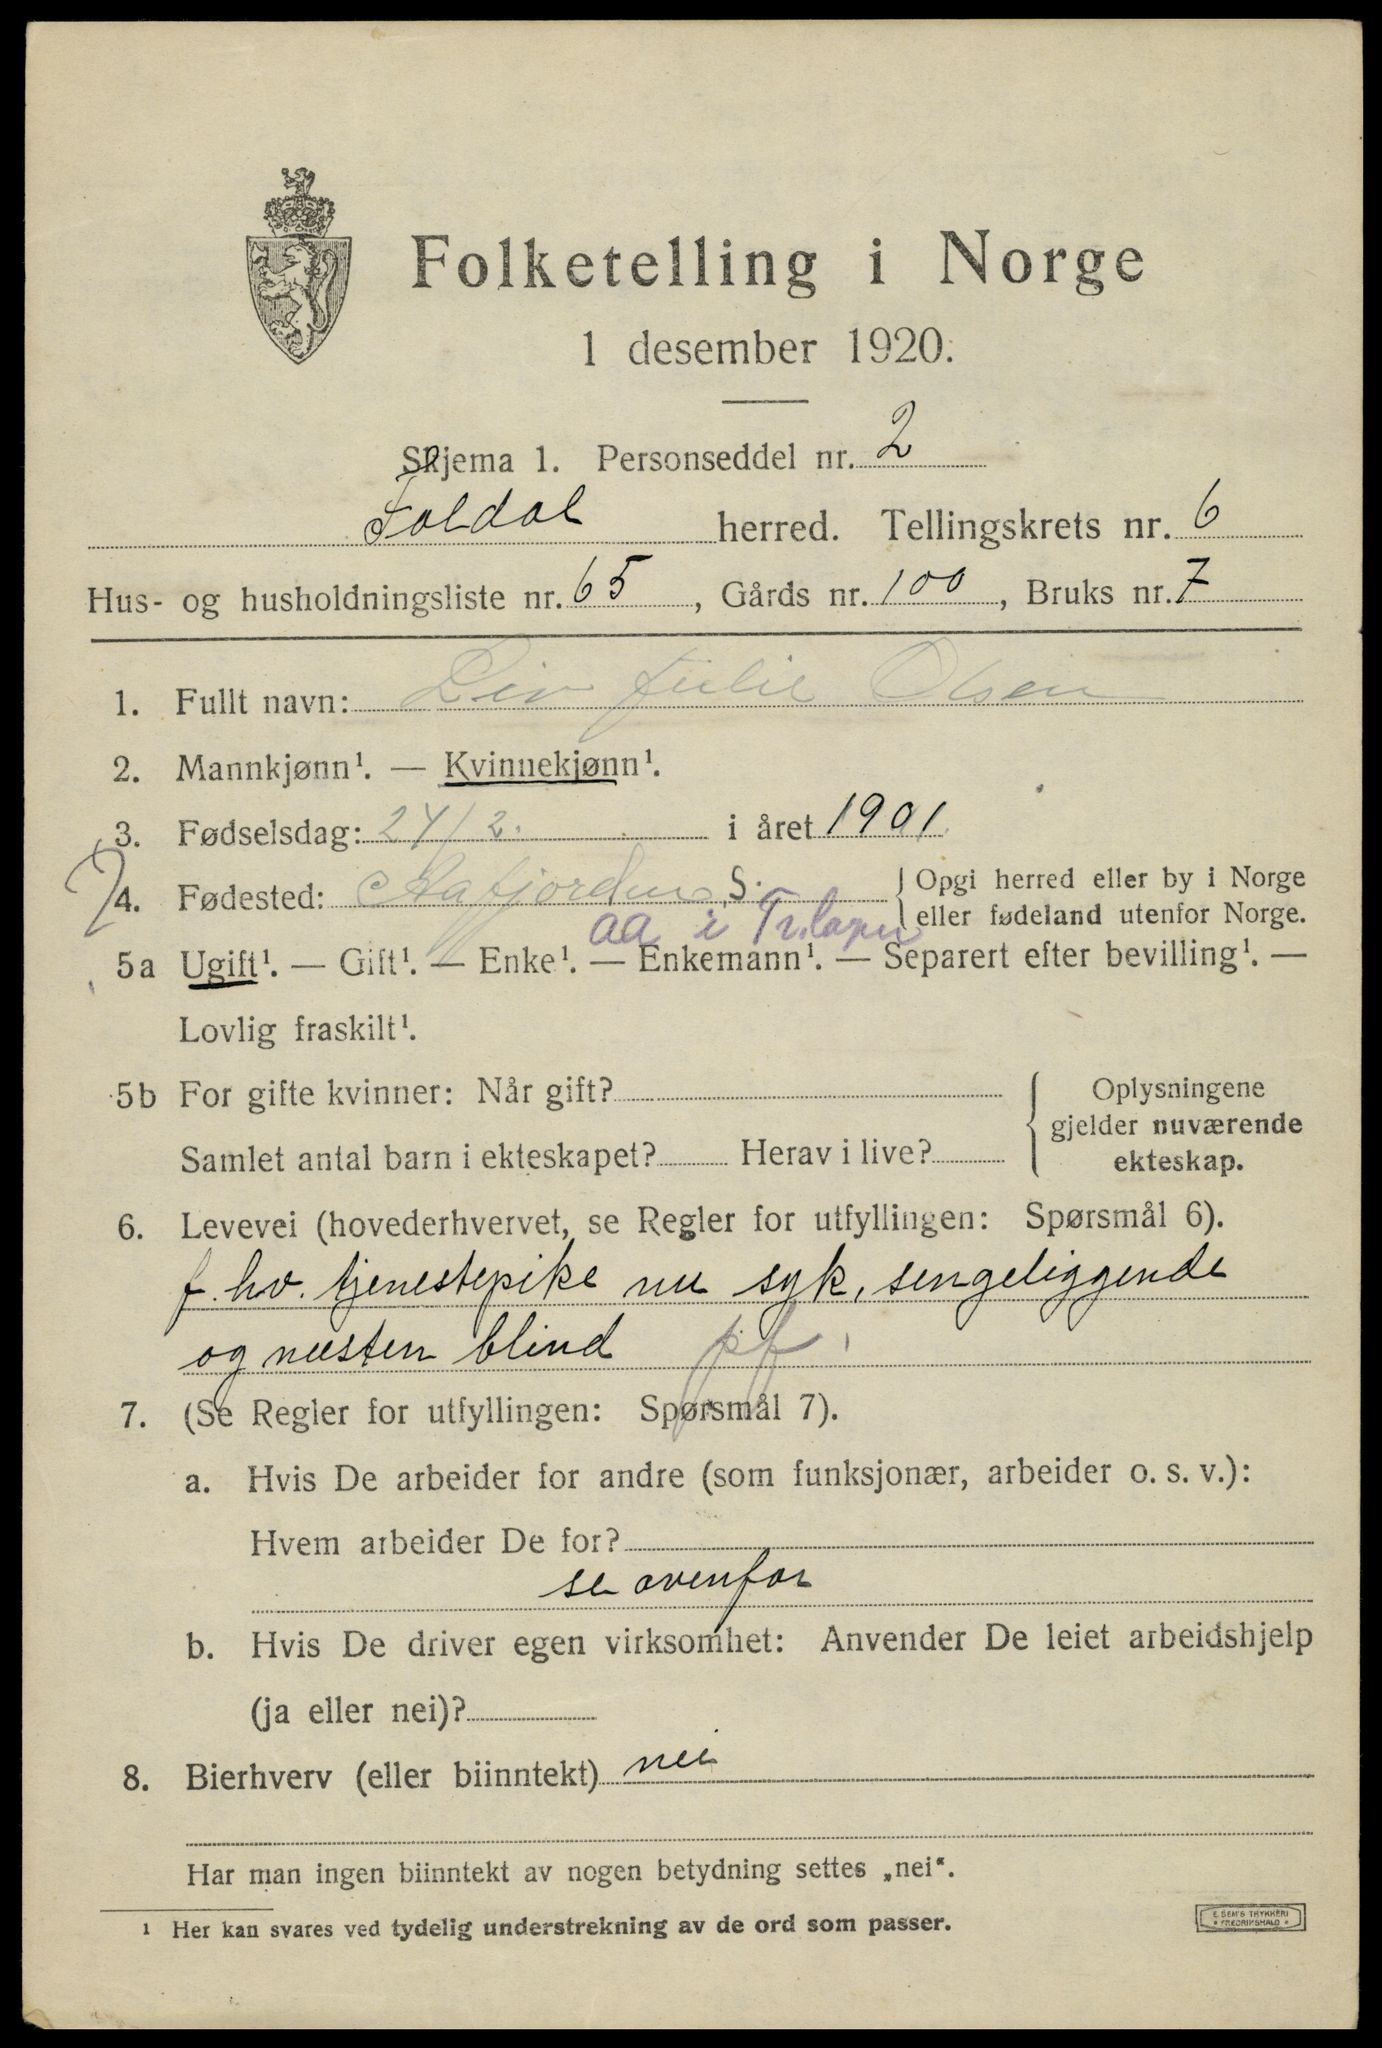 Folketelling i Norge
1 desember 1920.
Skjema 1. Personseddel nr. 2
Foldal herred. Tellingskrets nr. 6
Hus- og husholdningsliste nr. 65, Gårds nr. 100, Bruks nr. 7
1. Fullt navn: Liv Julie Olsen
2. Mannkjønn¹. — Kvinnekjønn¹.
3. Fødselsdag: 24/2. i året 1901
4. Fødested: Aafjorden, S. Opgi herred eller by i Norge
eller fødeland utenfor Norge.
aa i
5a Ugift¹. — Gift¹. — Enke¹. — Enkemann¹. — Separert efter bevilling¹. —
Lovlig fraskilt¹.
5b For gifte kvinner: Når gift? Oplysningene
gjelder nuværende
Samlet antal barn i ekteskapet? Herav i live? ekteskap.
6. Levevei (hovederhvervet, se Regler for utfyllingen: Spørsmål 6).
f. hv. tjenestepike nu syk, sengeliggende
og næsten blind pf
7. (Se Regler for utfyllingen: Spørsmål 7).
a. Hvis De arbeider for andre (som funksjonær, arbeider o. s. v.):
Hvem arbeider De for?
se ovenfor
b. Hvis De driver egen virksomhet: Anvender De leiet arbeidshjelp
(ja eller nei)?
8. Bierhverv (eller biinntekt) nei
Har man ingen biinntekt av nogen betydning settes „nei“.
¹ Her kan svares ved tydelig understrekning av de ord som passer.
E. SEM'S TRYKKERI
FREDRIKSHALD